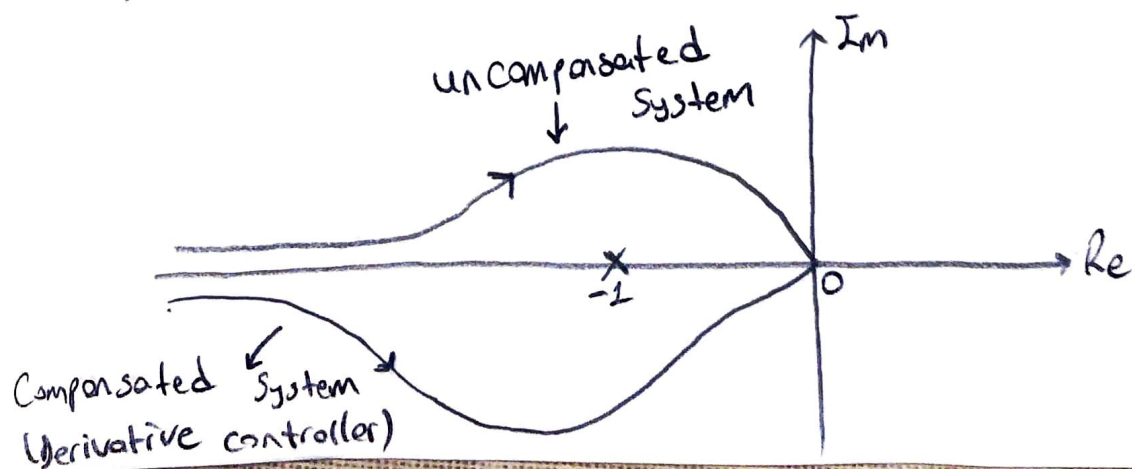 Im
uncompensated
System
Re
-1
0
Compensated System
(Derivative controller)